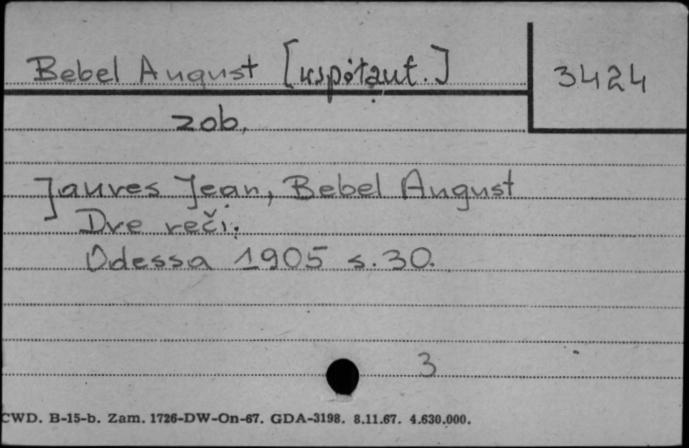 Bebel August [współaut.] 3424
zob.
Jaures Jean, Bebel August
Dve reči.
Odessa 1905 s. 30.
3
CWD. B-15-b. Zam. 1726-DW-On-67. GDA-3198. 8.11.67. 4.630.000.